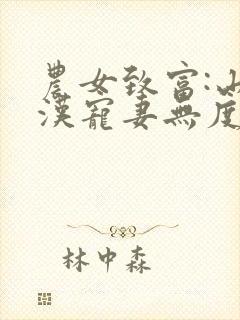 農女致富:山
漢寵妻無度
林中森